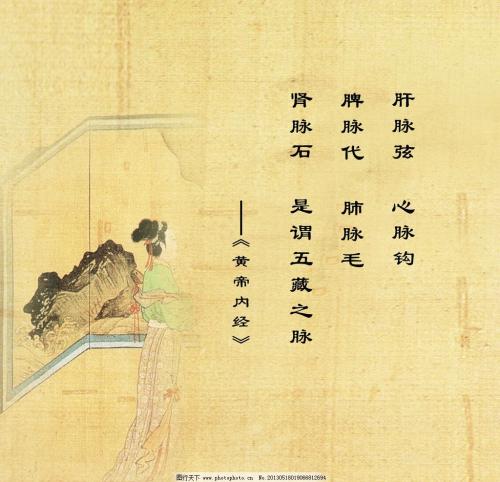 肝脉弦 心脉钩
脾脉代 肺脉毛
肾脉石 是谓五藏之脉
——《黄帝内经》
图行天下 www.photophoto.cn No.20130518019066812694